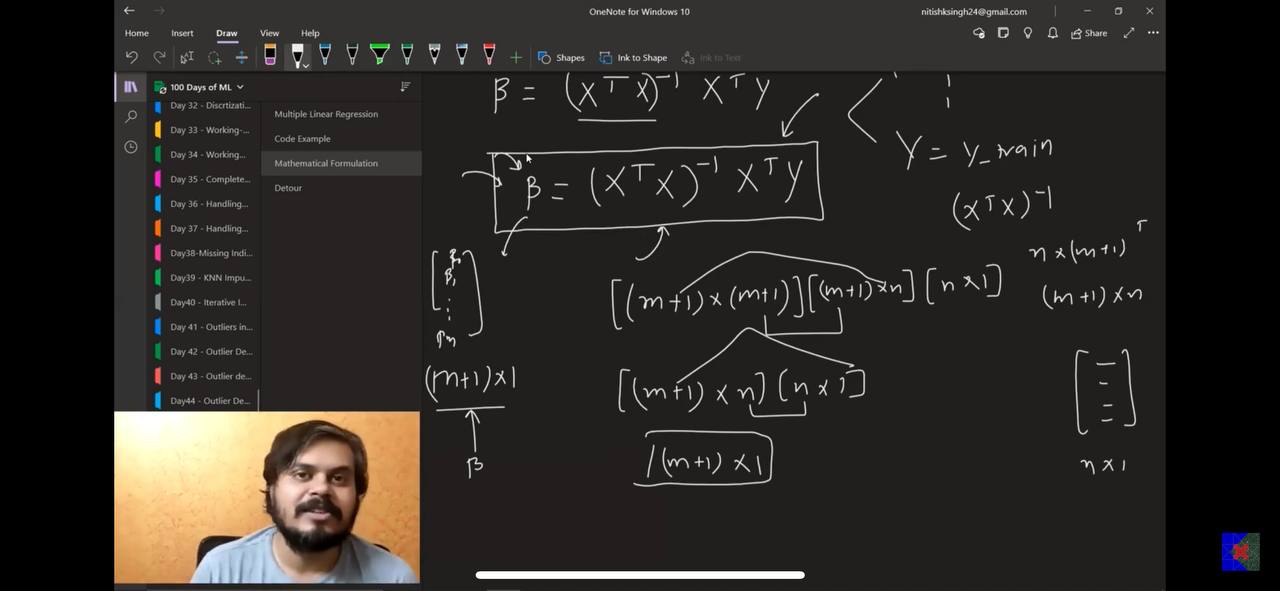 OneNote for Windows 10
nitishksingh24@gmail.com
Home Insert Draw View Help
Share
Shapes
Ink to Shape
Ink to Text
100 Days of ML
Day 32 - Discrtizati...
Day 33 - Working-...
Day 34 - Working...
Day 35 - Complete...
Day 36 - Handling...
Day 37 - Handling...
Day38-Missing Indi...
Day39 - KNN Impu...
Day40 - Iterative I...
Day 41 - Outliers in...
Day 42 - Outlier De...
Day 43 - Outlier de...
Day44 - Outlier De...
Multiple Linear Regression
Code Example
Mathematical Formulation
Detour
β = (XᵀX)⁻¹ XᵀY
Y = y_train
β = (XᵀX)⁻¹ XᵀY
(XᵀX)⁻¹
n×(m+1)ᵀ
(m+1)×n
[β₀
β₁
⋮
βm]
(m+1)×1
β
[(m+1)×(m+1)][(m+1)×n][n×1]
[(m+1)×n][n×1]
(m+1)×1
n×1